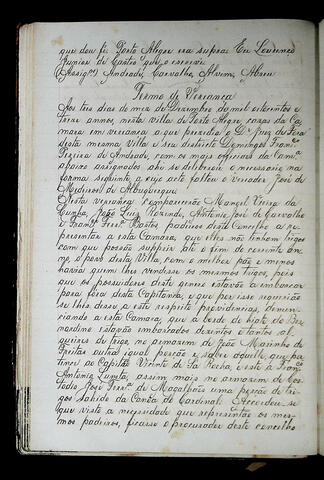 que dou fé. Porto Alegre era supra. Eu Lourenço
Junior de Castro que o escrevi
(Assigos) Andrade, Carvalho, Alvim, Abreu
Termo de Vereança
Aos tres dias do mez de Dezembro de mil oitocentos e
treze annos, nesta villa de Porto Alegre, cazas da Ca-
mara em vereança a que prezidio o Dr. Juiz de Fora
desta mesma Villa e seu districto Domingos Franco
Pereira de Andrade, com os mais officiaes da Camara
abaixo assignados ahi se deliberou o necessario na
forma seguinte, a cujo acto faltou o vereador José de
Medeiros de Albuquerque.
Nesta vereança compareceram Manoel Vieira da
Cunha, João Luiz Rozindo, Antonio José de Carvalho
e Franco José Bastos padeiros deste Concelho a re-
prezentar a esta Camara, que elles não tinham trigos
com que possão supprir até o fim do prezente an-
no, o povo desta Villa, com o milhor pão e menos
haviam quem lhes vendesse os mesmos trigos, pois
que os possuidores deste genero estavão a embarcar
para fóra desta Capitania, e que por isso requerião
se lhes désse a este respeito providencias, denun-
ciando a esta Camara, que a bordo do hiate do Ber-
nardino estavão embarcados duzentos e tantos al-
queires de trigo, no armazem de João Marinho de
Freitas outra igual porção e saber áquelle que per-
tence ao Capitão Vicente da Sa Rocha, e este a Franco
Antonio Lumta, assim mais no armazem de Cus-
todio José Teixa de Magalhães uma porção de tri-
gos sahido da Caza do Cardinal. Accordou-se
que visto a necessidade que reprezentão os mes-
mos padeiros, ficasse o procurador deste concelho